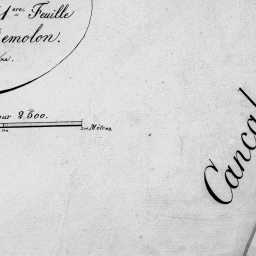 1.ere Feuille
emolon.
our 2.500.
Mètres
Canca